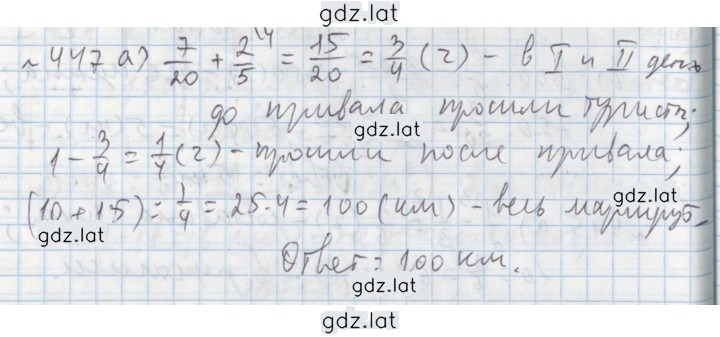 gdz.lat
№ 447 а) 7/20 + 2/5 \4 = 15/20 = 3/4 (г) - в I и II день
до привала прошли туристы;
gdz.lat
1 - 3/4 = 1/4 (г) - прошли после привала;
gdz.lat
(10 + 15) : 1/4 = 25 · 4 = 100 (км) - весь маршрут.
gdz.lat
gdz.lat
Ответ: 100 км.
gdz.lat
gdz.lat